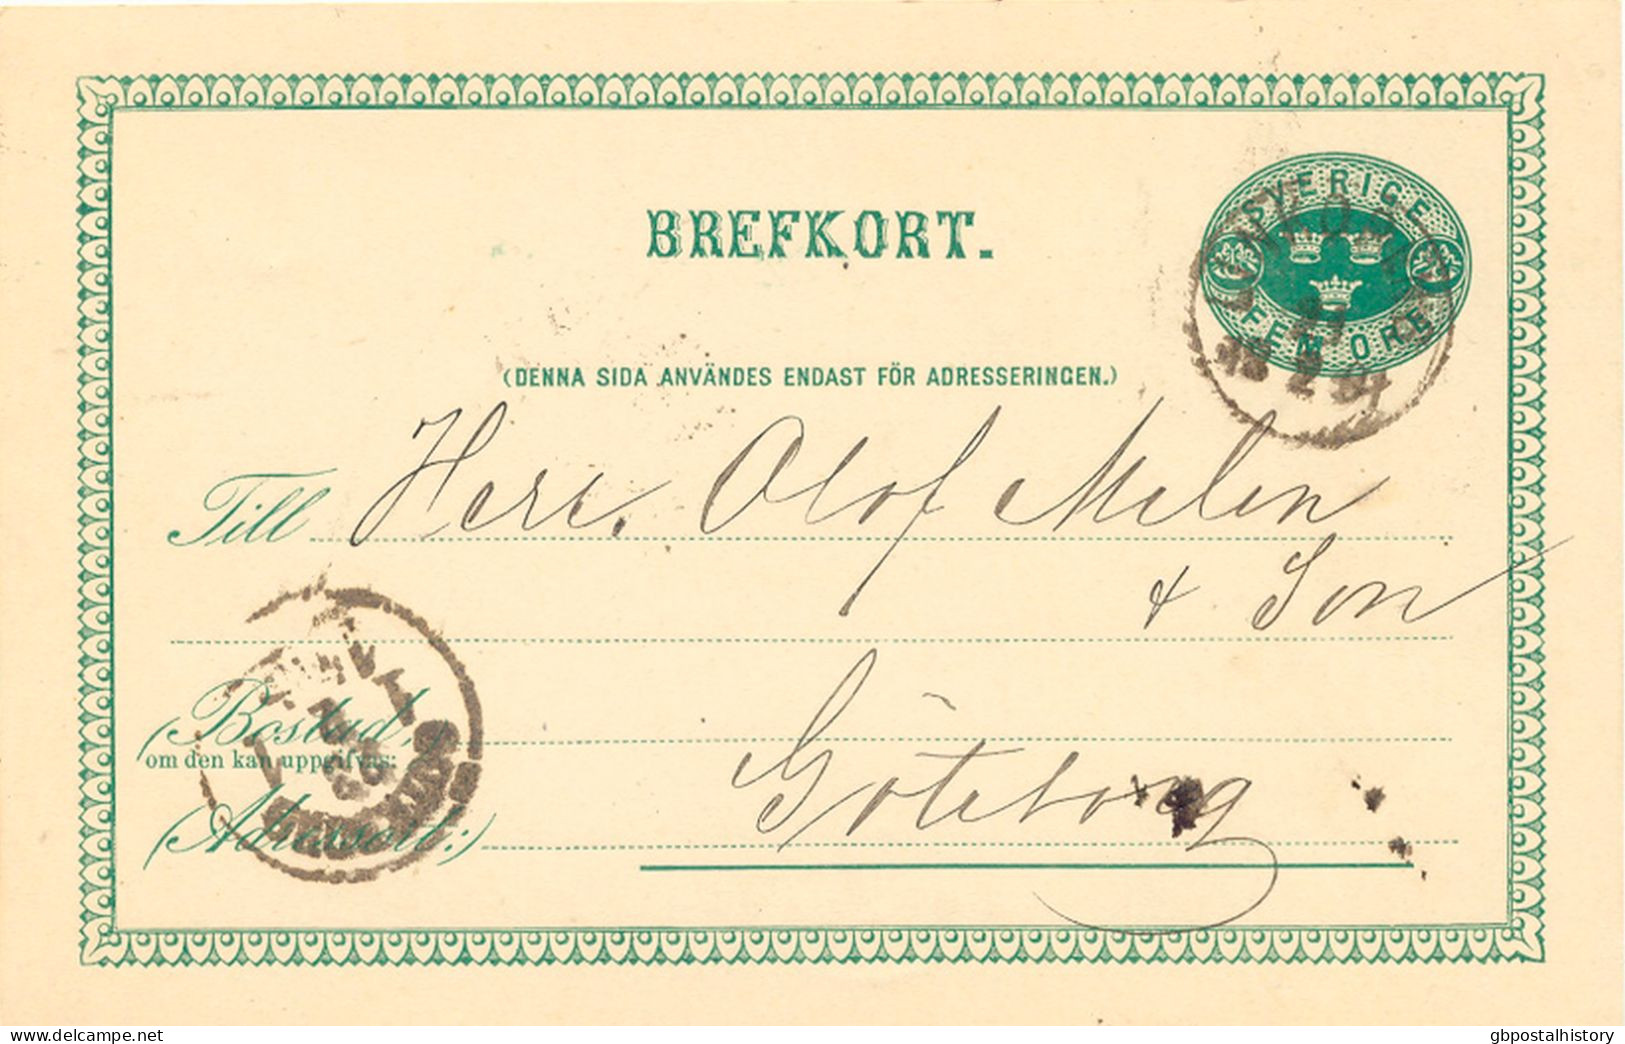 SVERIGE
FEM ÖRE
BREFKORT.
(DENNA SIDA ANVÄNDES ENDAST FÖR ADRESSERINGEN.)
Till Herr. Olof Melin
& Son
(Bostad,
om den kan uppgifvas:
Göteborg
(Adressort:)
www.delcampe.net
gbpostalhistory